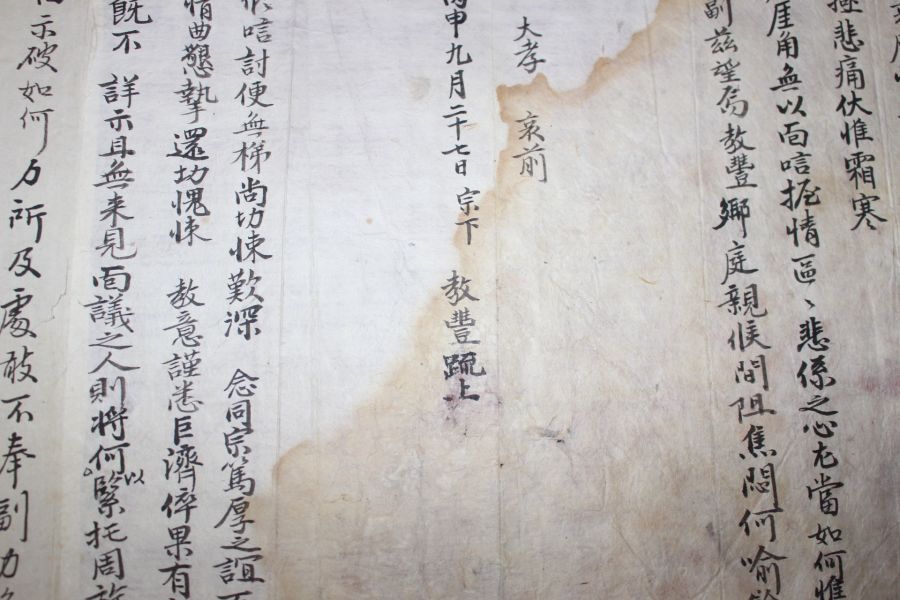 悲痛伏惟霜寒
厓角無以面唁握情區〻悲係之心尤當如何惟
副玆望焉教豐鄉庭親候間阻焦悶何喻
大孝 哀前
丙申九月二十七日 宗下 教豐疏上
唁討便無梯尚切悚歎深 念同宗篤厚之誼
情曲懇摯還切愧悚 教意謹悉巨濟倅果有
旣不 詳示且無来見面議之人則将何以緊托周
示破如何力所及處敢不奉副